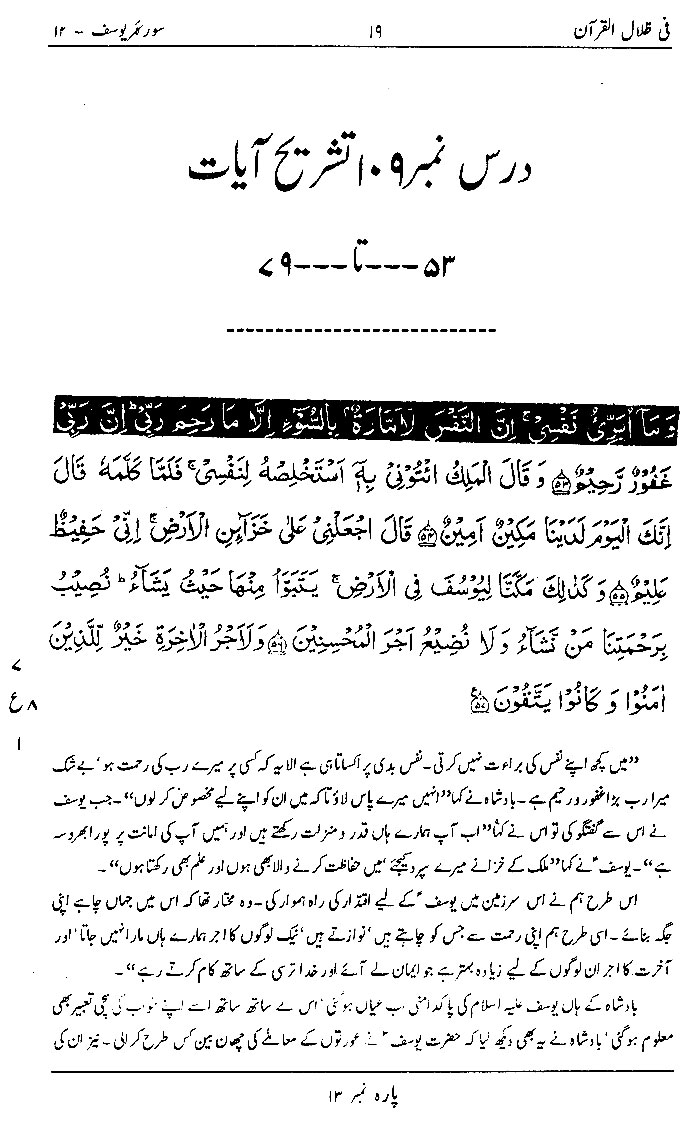 فی ظلال القرآن
۱۹
سورۃ یوسف - ۱۲
درس نمبر ۱۰۹ تشریح آیات
۵۳---تا---۷۹
وَمَآ اُبَرِّئُ نَفْسِيْ ۚ اِنَّ النَّفْسَ لَاَمَّارَةٌۢ بِالسُّوْٓءِ اِلَّا مَا رَحِمَ رَبِّيْ ۭ اِنَّ رَبِّيْ
غَفُوْرٌ رَّحِيْمٌ ﴿۵۳﴾ وَقَالَ الْمَلِكُ ائْتُوْنِيْ بِهٖٓ اَسْتَخْلِصْهُ لِنَفْسِيْ ۚ فَلَمَّا كَلَّمَهٗ قَالَ
اِنَّكَ الْيَوْمَ لَدَيْنَا مَكِيْنٌ اَمِيْنٌ ﴿۵۴﴾ قَالَ اجْعَلْنِيْ عَلٰى خَزَاۗىِٕنِ الْاَرْضِ ۚ اِنِّىْ حَفِيْظٌ
عَلِيْمٌ ﴿۵۵﴾ وَكَذٰلِكَ مَكَّنَّا لِيُوْسُفَ فِي الْاَرْضِ ۚ يَتَبَوَّاُ مِنْهَا حَيْثُ يَشَاۗءُ ۭ نُصِيْبُ
بِرَحْمَتِنَا مَنْ نَّشَاۗءُ وَلَا نُضِيْعُ اَجْرَ الْمُحْسِنِيْنَ ﴿۵۶﴾ وَلَاَجْرُ الْاٰخِرَةِ خَيْرٌ لِّلَّذِيْنَ
اٰمَنُوْا وَكَانُوْا يَتَّقُوْنَ ﴿۵۷﴾
۷
۸ ع
۱
”میں کچھ اپنے نفس کی براءت نہیں کرتی۔ نفس بدی پر اکساتا ہی ہے الا یہ کہ کسی پر میرے رب کی رحمت ہو‘ بے شک
میرا رب بڑا غفور و رحیم ہے۔ بادشاہ نے کہا ”انہیں میرے پاس لاؤ تاکہ میں ان کو اپنے لیے مخصوص کر لوں“۔ جب یوسف
نے اس سے گفتگو کی تو اس نے کہا ”اب آپ ہمارے ہاں قدر و منزلت رکھتے ہیں اور ہمیں آپ کی امانت پر پورا بھروسہ
ہے“۔ یوسف ؑ نے کہا ”ملک کے خزانے میرے سپرد کیجئے‘ میں حفاظت کرنے والا بھی ہوں اور علم بھی رکھتا ہوں“۔
اس طرح ہم نے اس سرزمین میں یوسف ؑ کے لیے اقتدار کی راہ ہموار کی۔ وہ مختار تھا کہ اس میں جہاں چاہے اپنی
جگہ بنائے۔ اسی طرح ہم اپنی رحمت سے جس کو چاہتے ہیں‘ نوازتے ہیں‘ نیک لوگوں کا اجر ہمارے ہاں مارا نہیں جاتا‘ اور
آخرت کا اجر ان لوگوں کے لیے زیادہ بہتر ہے جو ایمان لے آئے اور خدا ترسی کے ساتھ کام کرتے رہے“۔
بادشاہ کے ہاں یوسف علیہ اسلام کی پاکدامنی جب عیاں ہو گئی‘ اس کے ساتھ ساتھ اسے اپنے خواب کی سچی تعبیر بھی
معلوم ہو گئی‘ بادشاہ نے یہ بھی دیکھ لیا کہ حضرت یوسف ؑ نے عورتوں کے معاملے کی چھان بین کس طرح کرالی۔ نیز ان کی
پارہ نمبر ۱۳